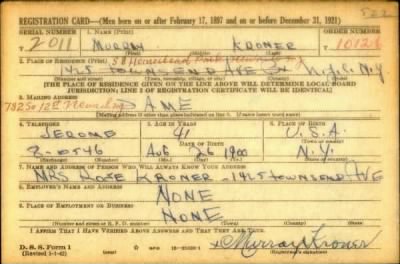 522
REGISTRATION CARD—(Men born on or after February 17, 1897 and on or before December 31, 1921)
SERIAL NUMBER 1. NAME (Print) ORDER NUMBER
T 2011 MURRAY KRONER 10124
(First) (Middle) (Last)
58 Homestead Park, Newburg
2. PLACE OF RESIDENCE (Print)
1425 TOWNSEND AVE N.Y.C. N.Y.
(Number and street) (Town, township, village, or city) (County) (State)
[THE PLACE OF RESIDENCE GIVEN ON THE LINE ABOVE WILL DETERMINE LOCAL BOARD
JURISDICTION; LINE 2 OF REGISTRATION CERTIFICATE WILL BE IDENTICAL]
3. MAILING ADDRESS
SAME
[Mailing address if other than place indicated on line 2. If same insert word same]
4. TELEPHONE 5. AGE IN YEARS 6. PLACE OF BIRTH
JEROME 41 U.S.A.
DATE OF BIRTH
2-0546 AUG 26 1900 N.Y.
(Exchange) (Number) (Mo.) (Day) (Yr.) (State or country)
7. NAME AND ADDRESS OF PERSON WHO WILL ALWAYS KNOW YOUR ADDRESS
MRS ROSE KRONER - 1425 TOWNSEND AVE
8. EMPLOYER'S NAME AND ADDRESS
NONE
9. PLACE OF EMPLOYMENT OR BUSINESS
NONE
(Number and street or R. F. D. number) (Town) (County) (State)
I AFFIRM THAT I HAVE VERIFIED ABOVE ANSWERS AND THAT THEY ARE TRUE.
D. S. S. Form 1
(Revised 1-1-42) (over)
x Murray Kroner
(Registrant's signature)